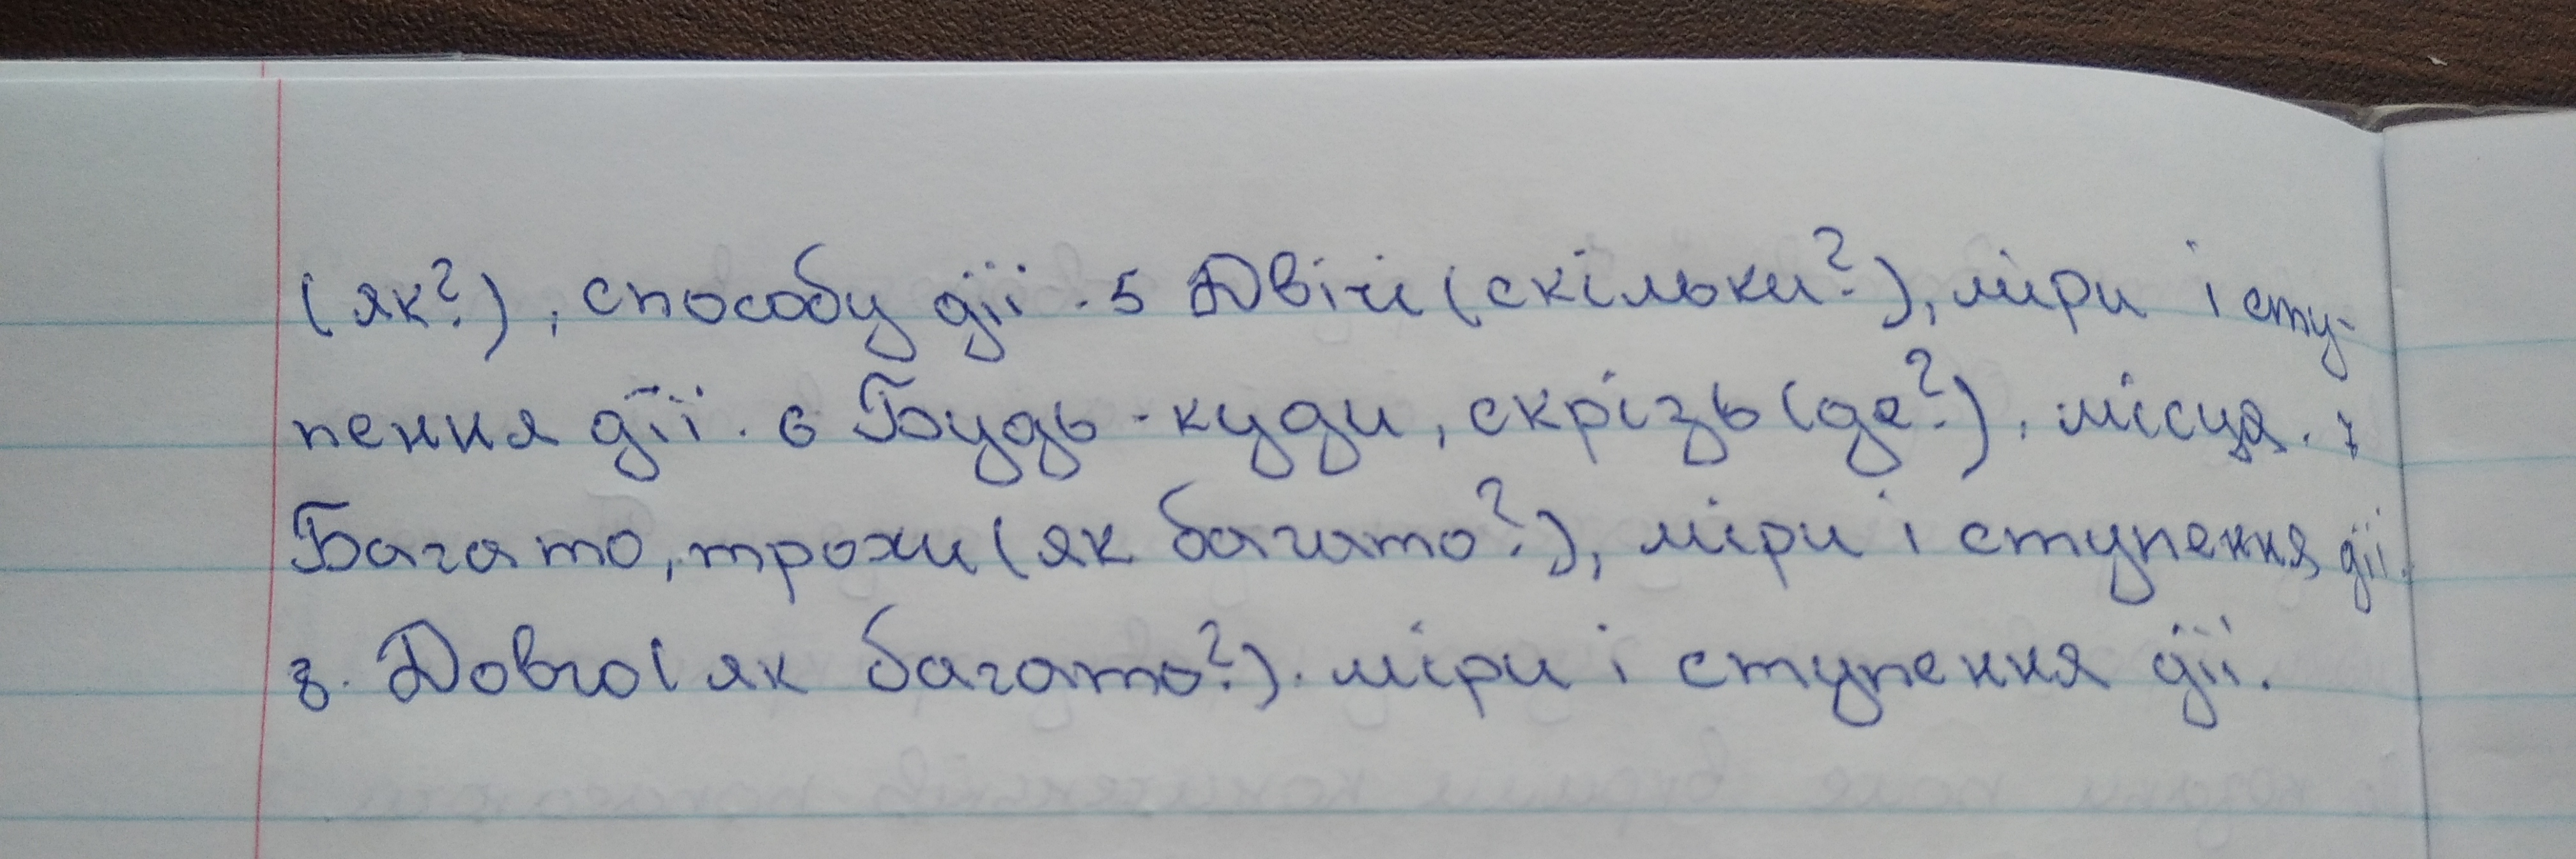 (як?), способу дії. 5 Двічі (скільки?), міри і сту-
пення дії. 6 Будь-куди, скрізь (де?), місця. 7
Багато, трохи (як багато?), міри і ступення дії.
8. Довго (як багато?). міри і ступення дії.